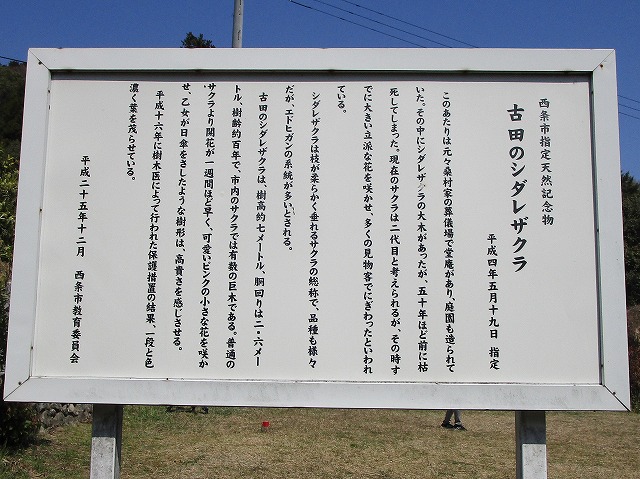 西条市指定天然記念物
古田のシダレザクラ
平成四年五月十九日　指定
このあたりは元々桑村家の葬儀場で堂庵があり、庭園も造られて
いた。その中にシダレザクラの大木があったが、五十年ほど前に枯
死してしまった。現在のサクラは二代目と考えられるが、その時す
でに大きい立派な花を咲かせ、多くの見物客でにぎわったといわれ
ている。
シダレザクラは枝が柔らかく垂れるサクラの総称で、品種も様々
だが、エドヒガンの系統が多いとされる。
古田のシダレザクラは、樹高約七メートル、胴回りは二・六メー
トル、樹齢約百年で、市内のサクラでは有数の巨木である。普通の
サクラより開花が一週間ほど早く、可愛いピンクの小さな花を咲か
せ、乙女が日傘をさしたような樹形は、高貴さを感じさせる。
平成十六年に樹木医によって行われた保護措置の結果、一段と色
濃く葉を茂らせている。
平成二十五年十二月　西条市教育委員会